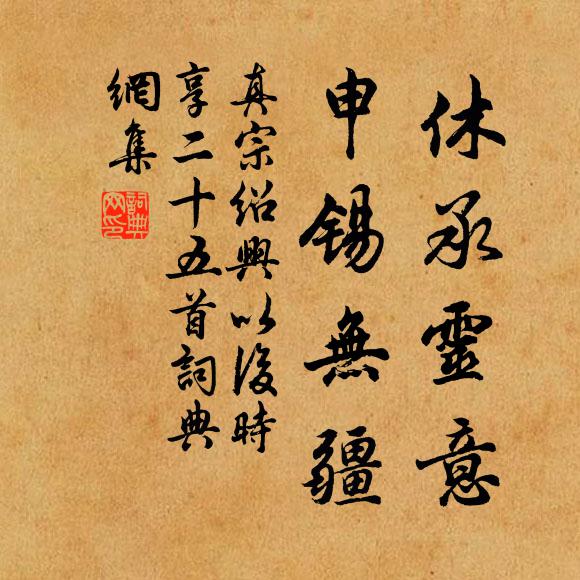 休承靈意
申錫無疆
真宗紹興以後時
享二十五首詞典
網集
詞典
網印